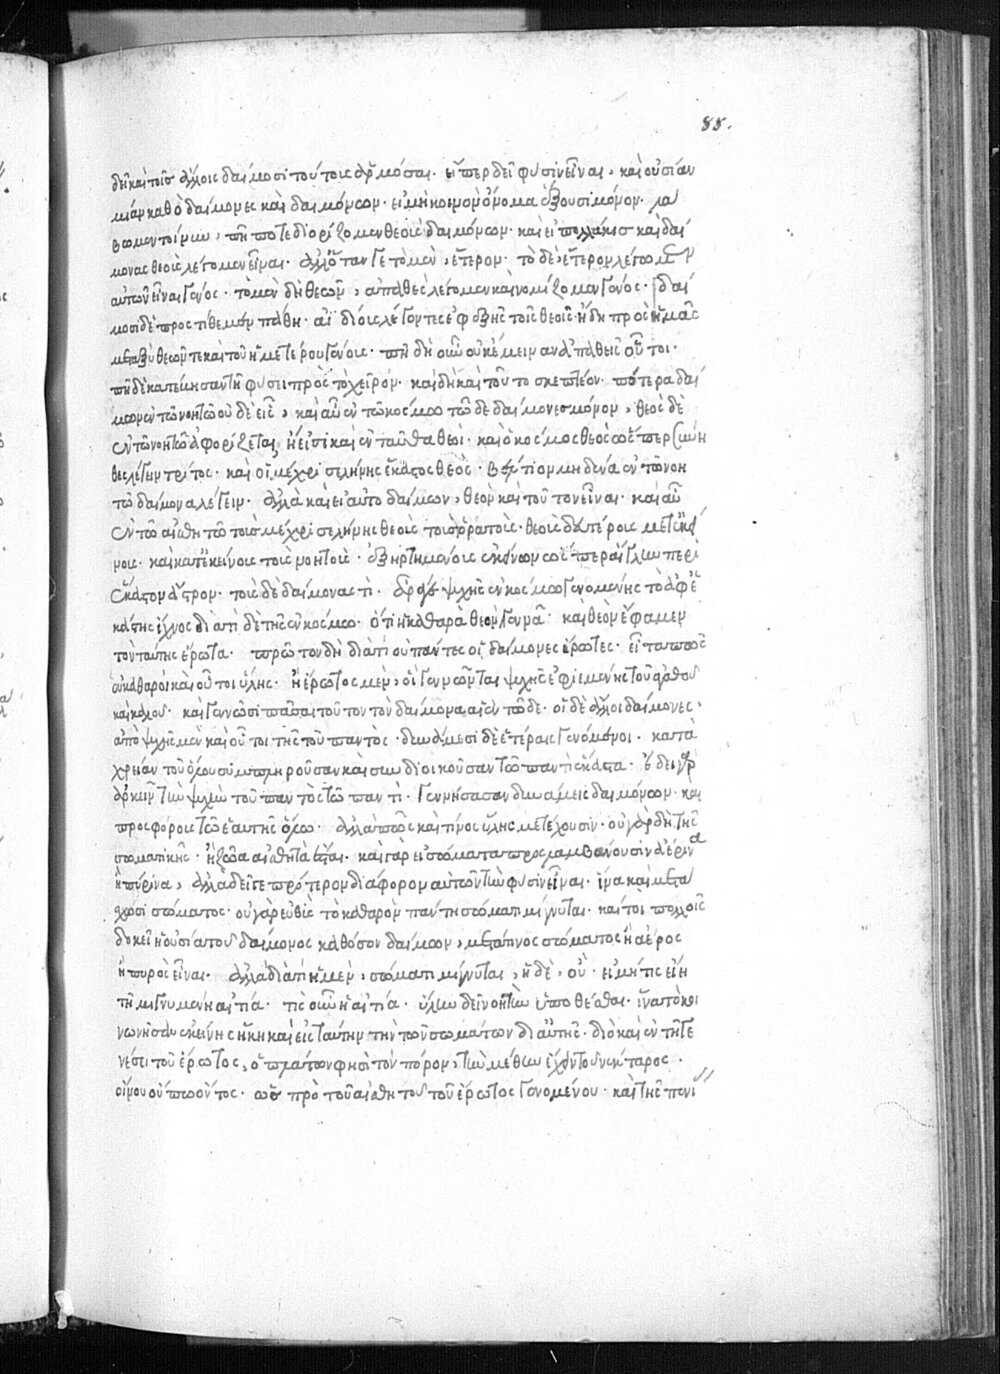 88.
δεῖ καὶ τοῖς ἄλλοις δαίμοσι τούτοις ἁρμόσαι. εἴπερ δεῖ φύσιν εἶναι, καὶ οὐσίαν
μίαν καθὸ δαίμονες καὶ δαιμόνων. εἰ μὴ κοινὸν ὄνομα ἕξουσι μόνον. λά
βωμεν τοίνυν, πῇ ποτε διορίζομεν θεοὺς δαιμόνων. καὶ εἰ πολλάκις καὶ δαί
μονας θεοὺς λέγομεν εἶναι. ἀλλ' ὅταν γε τὸ μὲν, ἕτερον. τὸ δὲ, ἕτερον λέγωμεν
αὐτῶν εἶναι γένος. τὸ μὲν δὴ θεῶν, ἀπαθὲς λέγομεν καὶ νομίζομεν γένος. δαί
μοσι δὲ προστίθεμεν πάθη. ἀϊδίους λέγοντες ἐφεξῆς τοῖς θεοῖς. ἤδη πρὸς ἡμᾶς
μεταξὺ θεῶν τε καὶ τοῦ ἡμετέρου γένους. πῇ δὴ οὖν οὐκ ἔμειναν ἀπαθεῖς οὗτοι.
πῇ δὲ κατέβησαν τῇ φύσει πρὸς τὸ χεῖρον. καὶ δὴ καὶ τοῦτο σκεπτέον. πότερα δαί
μων ἐν τῷ νοητῷ οὐδὲ εἷς, καὶ αὖ ἐν τῷ κόσμῳ τῷδε δαίμονες μόνον, θεὸς δὲ
ἐν τῷ νοητῷ ἀφορίζεται, ἢ εἰσὶ καὶ ἐνταῦθα θεοί. καὶ ὁ κόσμος θεὸς ὥσπερ σύνη
θες λέγειν τρίτος. καὶ οἱ μέχρι σελήνης ἕκαστος θεός. βέλτιον μηδένα ἐν τῷ νοη
τῷ δαίμονα λέγειν. ἀλλὰ καὶ εἰ αὐτοδαίμων, θεὸν καὶ τοῦτον εἶναι. καὶ αὖ
ἐν τῷ αἰσθητῷ τοὺς μέχρι σελήνης θεοὺς τοὺς ὁρατοὺς. θεοὺς δευτέρους μετ' ἐκεί
νους. καὶ κατ' ἐκείνους τοὺς νοητοὺς. ἐξηρτημένους ἐκείνων ὥσπερ αἴγλην περὶ
ἕκαστον ἄστρον. τοὺς δὲ δαίμονας τί. ἆρά γε ψυχῆς ἐν κόσμῳ γενομένης τὸ ἀφ' ἑ
κάστης ἴχνος διὰ τί δὲ τῆς ἐν κόσμῳ. ὅτι ἡ καθαρὰ θεὸν γεννᾶ. καὶ θεὸν ἔφαμεν
τὸν ταύτης ἔρωτα. πρῶτον δὴ διὰ τί οὐ πάντες οἱ δαίμονες ἔρωτες. εἶτα πῶς
οὐ καθαροὶ καὶ οὗτοι ὕλης. ἢ ἔρωτες μὲν, οἳ γεννῶνται ψυχῆς ἐφιεμένης τοῦ ἀγαθοῦ
καὶ καλοῦ. καὶ γεννῶσι πᾶσαι τοῦτον τὸν δαίμονα αἱ ἐν τῷδε. οἱ δὲ ἄλλοι δαίμονες.
ἀπὸ ψυχῆς μὲν καὶ οὗτοι τῆς τοῦ παντὸς. δυνάμεσι δὲ ἑτέραις γενόμενοι. κατὰ
χρείαν τοῦ ὅλου συμπληροῦσαν καὶ συνδιοικοῦσαν τῷ παντὶ ἕκαστα. ἔδει γὰρ
ἀρκεῖν τὴν ψυχὴν τοῦ παντὸς τῷ παντὶ. γεννήσασαν δυνάμεις δαιμόνων. καὶ
προσφόρους τῷ ἑαυτῆς ὅλῳ. ἀλλὰ πῶς καὶ τίνος ὕλης μετέχουσιν. οὐ γὰρ δὴ τῆς
σωματικῆς. ἢ ζῶα αἰσθητὰ ἔσται. καὶ γὰρ εἰ σώματα προσλαμβάνουσιν ἀέρινα
ἢ πύρινα, ἀλλὰ δεῖ γε πρότερον διάφορον αὐτῶν τὴν φύσιν εἶναι. ἵνα καὶ μετά
σχωσι σώματος. οὐ γὰρ εὐθὺς τὸ καθαρὸν πάντη σώματι μίγνυται. καίτοι πολλοῖς
δοκεῖ ἡ οὐσία τοῦ δαίμονος καθόσον δαίμων, μετά τινος σώματος ἢ ἀέρος
ἢ πυρὸς εἶναι. ἀλλὰ διὰ τί ἡ μὲν, σώματι μίγνυται, ἡ δὲ, οὔ. εἰ μή τις εἴη
τῇ μιγνυμένῃ αἰτία. τίς οὖν ἡ αἰτία. ὕλην δεῖ νοητὴν ὑποθέσθαι. ἵνα τὸ κοι
νωνῆσαν ἐκείνης ἥκῃ καὶ εἰς ταύτην τὴν τῶν σωμάτων δι' αὐτῆς. διὸ καὶ ἐν τῇ γε
νέσει τοῦ ἔρωτος, ὁ πλάτων φησὶ τὸν πόρον, τὴν μέθην ἔχειν τοῦ νέκταρος.
οἴνου οὔπω ὄντος. ὡς πρὸ τοῦ αἰσθητοῦ τοῦ ἔρωτος γενομένου. καὶ τῆς πενί